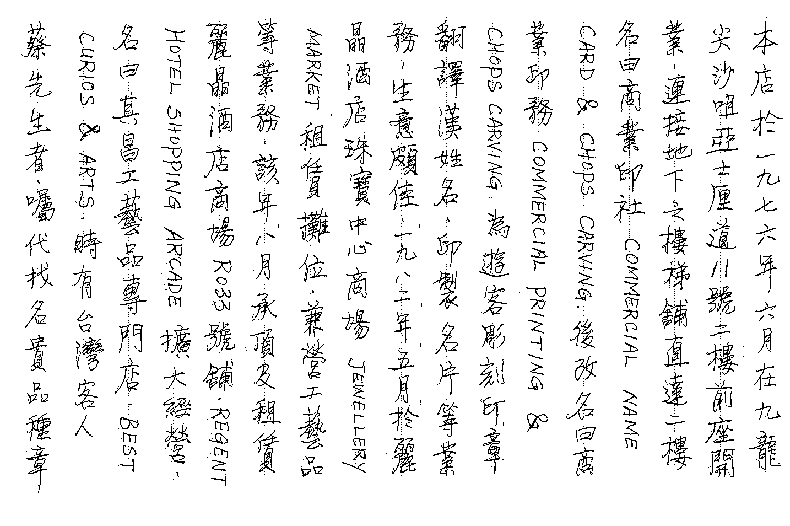 本店於一九七六年六月在九龍
尖沙咀亞士厘道川號二樓前座開
業，連接地下之樓梯鋪直達二樓
名由商業印社 COMMERCIAL NAME
CARD & CHOPS CARVING. 後改名由商
業印務 COMMERCIAL PRINTING &
CHOPS CARVING. 為遊客彫刻印章
翻譯漢姓名，印製名片等業
務，生意頗佳，一九八二年五月於麗
晶酒店珠寶中心商場 JEWELLERY
MARKET 租賃攤位，兼營工藝品
等業務，該年八月承頂及租賃
麗晶酒店商場 R033 號鋪，REGENT
HOTEL SHOPPING ARCADE 擴大經營，
名由真昌工藝品專門店，BEST
CURIOS & ARTS. 時有台灣客人
蔡先生者，囑代找名貴品種章